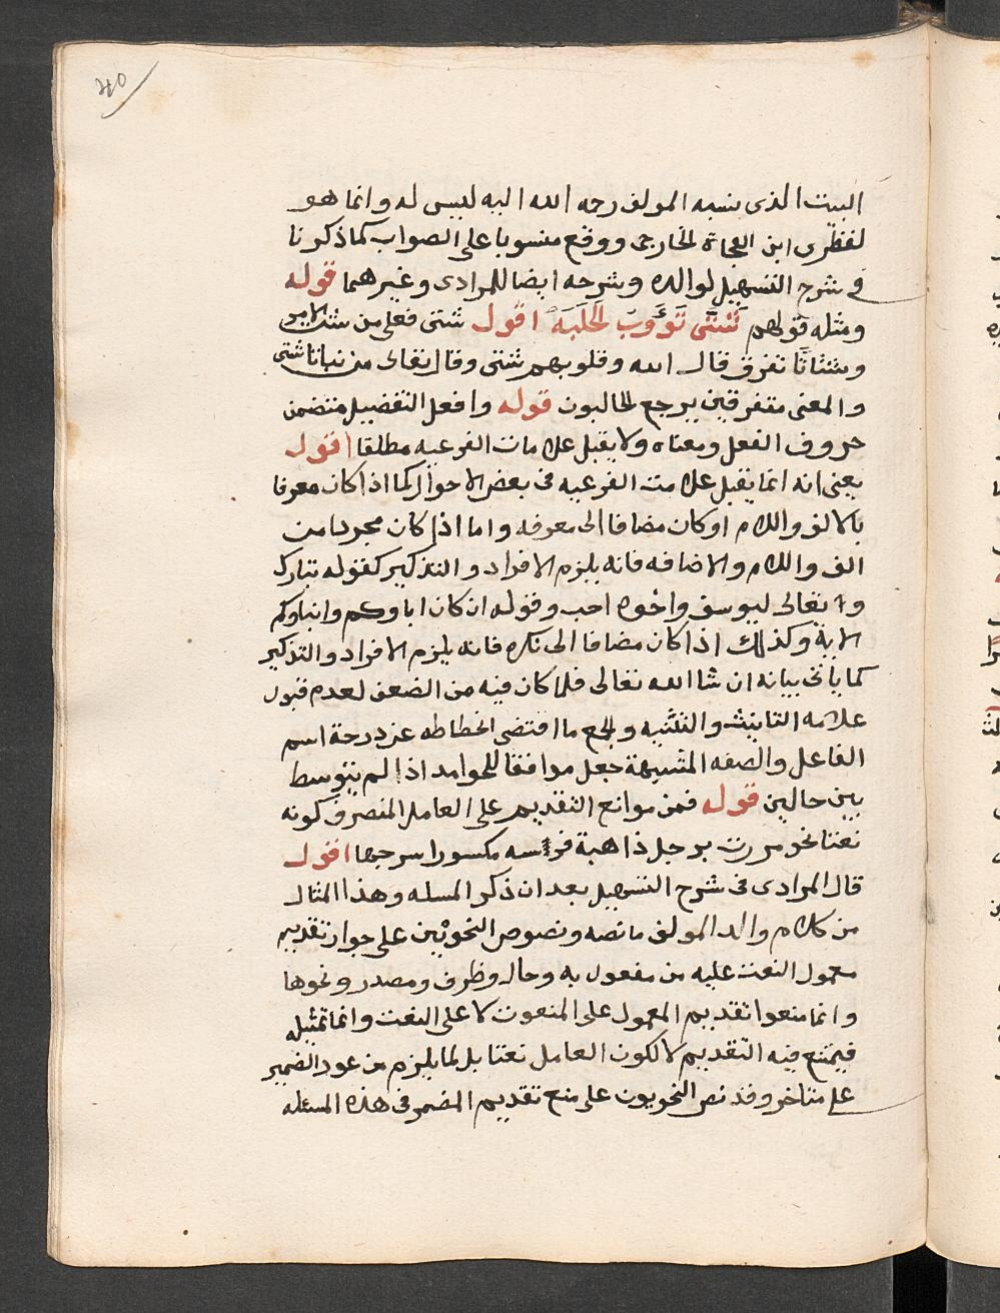 40
البيت الذى نسبه المولف رحه الله اليه ليس له وانما هو
لقطرى ابن الفجاة الخارجى ووقع منسوبا على الصواب كما ذكرنا
فى شرح التسهيل لوالده وشرحه ايضا للمرادى وغيرهما قوله
ومثله قولهم شَتَّى تَؤُوبُ الحَلَبَة اقول شتى فعلى من شت الامر
وشتاتًا تفرق قال الله وقلوبهم شتى وقال تعالى من نباتا شتى
والمعنى متفرقين يرجع الحالبون قوله وافعل التفضيل متضمن
حروف الفعل ومعناه ولا يقبل علامات الفرعيه مطلقا اقول
يعنى انه انما يقبل علامت الفرعيه فى بعض الاحوال كما اذا كان معرفا
بالالف واللام او كان مضافا الى معرفه واما اذا كان مجردا من
الف واللام والاضافه فانه يلزم الافراد والتذكير كقوله تبارك
وتعالى ليوسف واخوه احب وقوله ان كان اباوكم وابناوكم
الاية وكذلك اذا كان مضافا الى نكره فانه يلزم الافراد والتذكير
كما ياتى بيانه ان شا الله تعالى فلما كان فيه من الضعف لعدم قبول
علامه التانيث والتثنيه والجمع ما اقتضى انحطاطه عن درجة اسم
الفاعل والصفه المشبهة جعل موافقا للجوامد اذا لم يتوسط
بين حالين قوله فمن موانع التقديم على العامل المنصرف كونه
نعتا نحو مررت برجل ذاهبة فرسه مكسورا سرجها اقول
قال المرادى فى شرح التسهيل بعد ان ذكر المسله وهذا المثال
من كلام والد المولف ما نصه ونصوص النحويين على جواز تقديم
معمول النعت عليه من مفعول به وحال وظرف ومصدر ونحوها
وانما منعوا تقديم المعمول على المنعوت لا على النعت وانما تمثيله
فيمتنع فيه التقديم لا لكون العامل نعتا بل لما يلزم من عود الضمير
على متاخر وقد نص النحويون على منع تقديم المضمر فى هذه المسئله